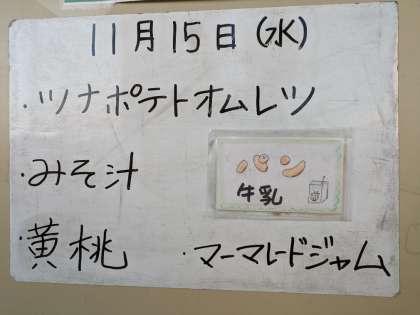 11月15日(水)
・ツナポテトオムレツ
・みそ汁
パン
牛乳
・黄桃
・マーマレードジャム